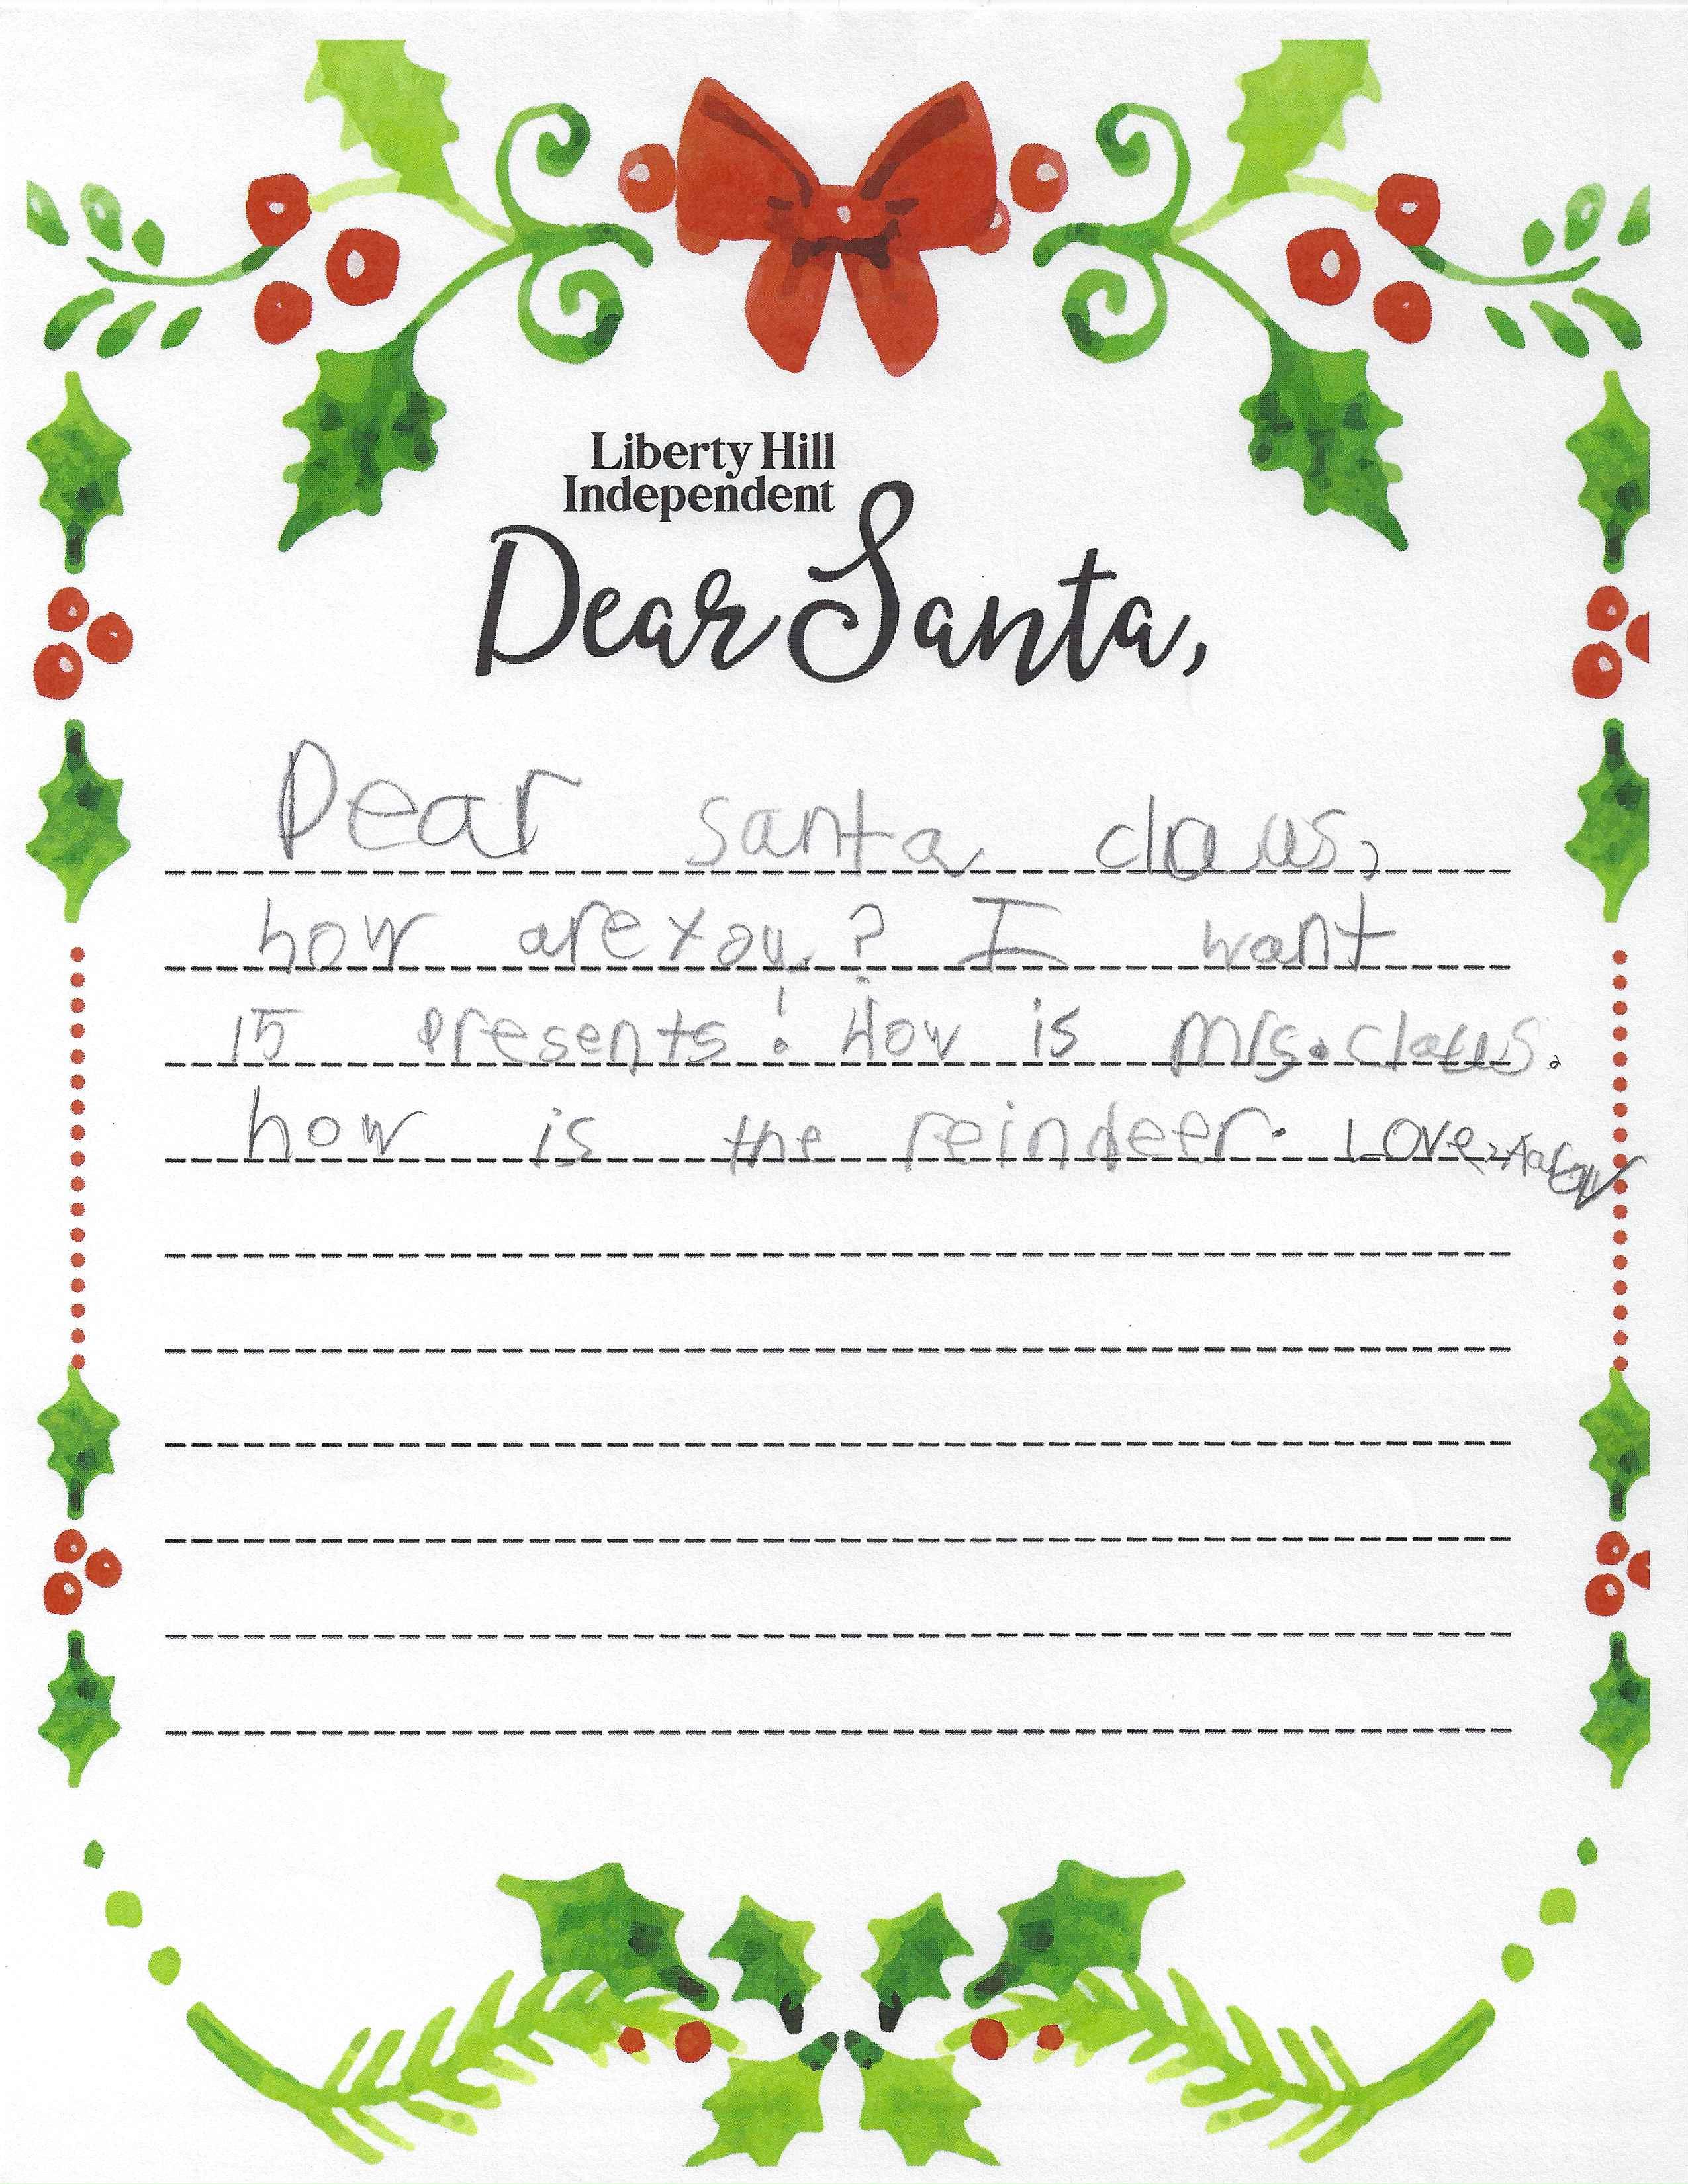 Liberty Hill
Independent
Dear Santa,
Dear santa claus,
how are you? I want
15 presents! How is Mrs. claus.
how is the reindeer. Love,